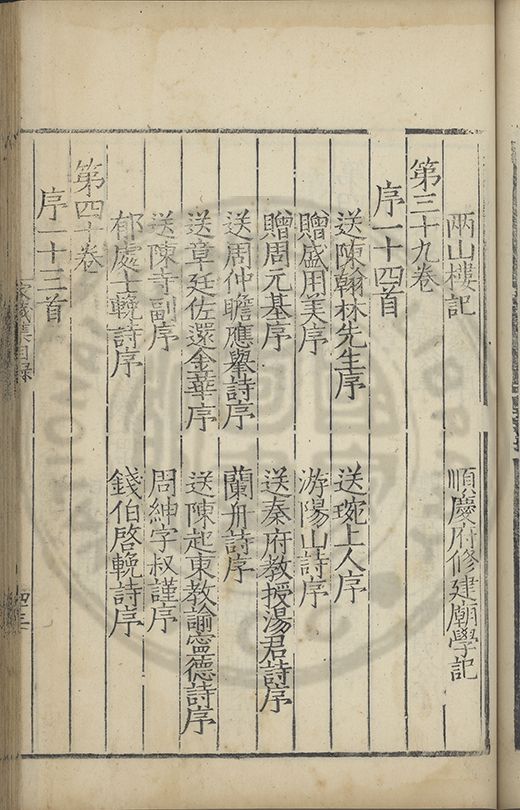 兩山樓記　順慶府修建廟學記
第三十九卷
序一十四首
送陳翰林先生序　送琬上人序
贈盛用美序　游陽山詩序
贈周元基序　送秦府教授湯君詩序
送周仲瞻應舉詩序　蘭舟詩序
送章廷佐還金華序　送陳起東教諭寧德詩序
送陳寺副序　周紳字叔謹序
郁處士輓詩序　錢伯啓輓詩序
第四十卷
序一十三首
家藏集目錄